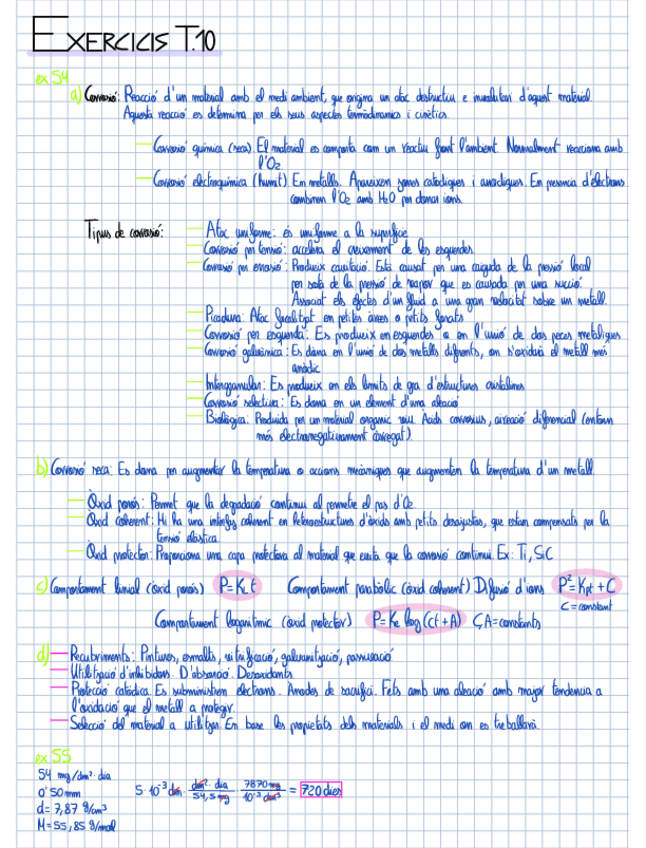 EXERCICIS T.10
ex 54
a) Corrosió: Reacció d'un material amb el medi ambient, que origina un atac destructiu e involuntari d'aquest material.
Aquesta reacció es determina per els seus aspectes termodinamics i cinètics.
Corrosió química (seca). El material es comporta com un reactiu front l'ambient. Normalment reacciona amb
l'O2
Corrosió electroquimica (humit). En metalls. Apareixen zones catodiques i anodiques. En presencia d'electrons
combinen l'O2 amb H2O per donar ions.
Tipus de corrosió:
Atac uniforme: és uniforme a la superfície
Corrosió per tensió: accelera el creixement de les esquerdes.
Corrosió per erosió: Produeix cavitació. Està causat per una caiguda de la pressió local
per sota de la pressió de vapor que es causada per una succió.
Associat els efectes d'un fluid a una gran velocitat sobre un metall.
Picadura: Atac localitzat en petites àrees o petits forats
Corrosió per esquerda: Es produeix en esquerdes o en l'unió de dos peces metal·liques
Corrosió galvànica: Es dona en l'unió de dos metalls diferents, on s'oxidarà el metall més
anòdic
Intergranular: Es produeix en els limits de gra d'estructures cristalines
Corrosió selectiva: Es dona en un element d'una aleació
Biològica: Produida per un material organic viu. Àcids corrosius, aireació diferencial (entorn
més electronegativament carregat).
b) Corrosió seca: Es dona per augmentar la temperatura o accions mecàniques que augmenten la temperatura d'un metall.
Òxid porós: Permet que la degradació continui al permetre el pas d'O2.
Òxid coherent: Hi ha una interfas coherent en heteroestructures d'òxids amb petits desajustos, que estan compensats per la
tensió elàstica.
Òxid protector: Proporciona una capa protectora al material que evita que la corrosió continui. Ex: Ti, SiC
c) Comportament linial (òxid porós) P=KL t Comportament parabòlic (òxid coherent) Difusió d'ions P²=Kpt + C
C = constant
Comportament logaritmic (oxid protector) P=Ke log (ct + A) C,A=constants
d) Recubriments: Pintures, esmalts, vitrificació, galvanització, passivació
Utilització d'inhibidors. D'absorció. Desoxidants.
Protecció catòdica. Es subministren electrons. Anodes de sacrifici. Fets amb una aleació amb major tendencia a
l'oxidació que el metall a protegir.
Selecció del material a utilitzar. En base les propietats dels materials i el medi on es treballarà.
ex 55
54 mg/dm² · dia
0'50mm
d= 7,87 g/cm³
M=55,85 g/mol
5·10⁻³ dm · dm² · dia / 54,5 mg · 7870 mg / 10⁻³ dm³ = 720 dies